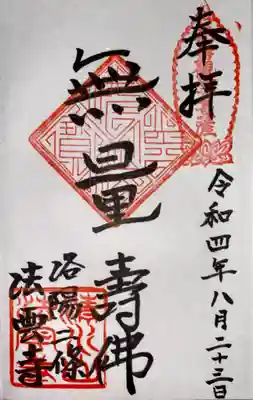 奉拝
令和四年八月二十三日
無量壽佛
洛陽二條
法雲寺